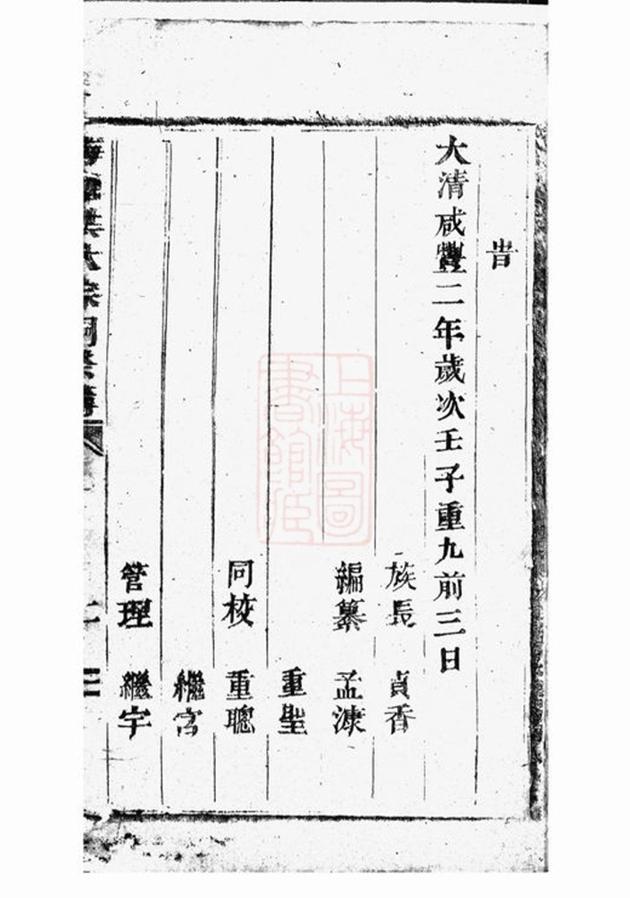 旹
大清咸豐二年歲次壬子重九前三日
族長 貞香
編纂 孟漮
重聖
同校 重聰
繼宮
管理 繼宇
大宗祠祭簿
上海圖書館藏